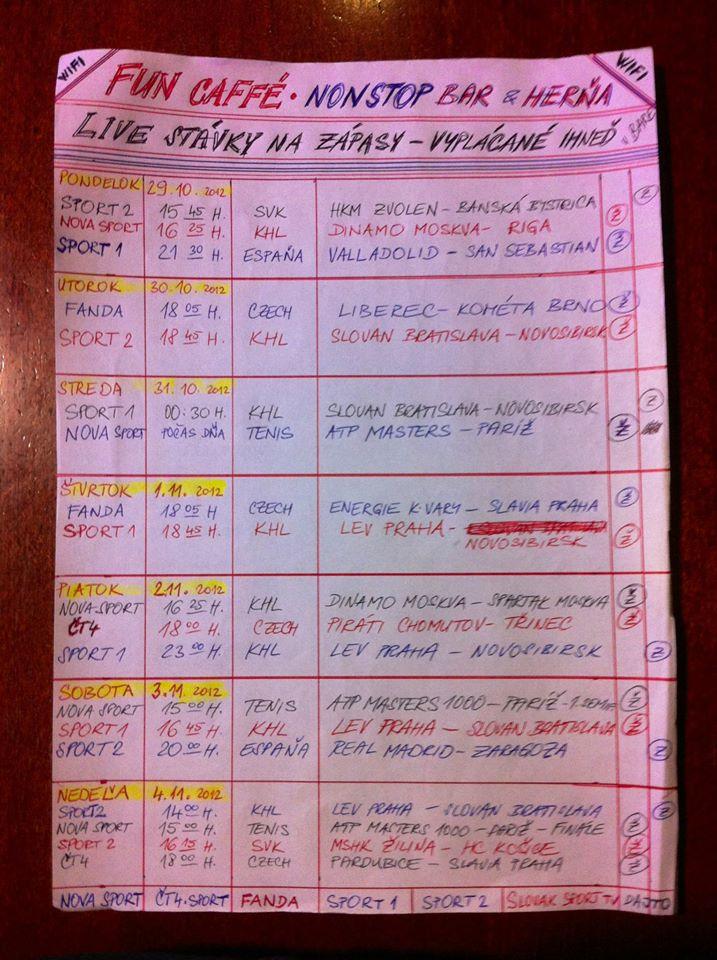 WIFI FUN CAFFÉ • NONSTOP BAR & HERŇA WIFI
LIVE STÁVKY NA ZÁPASY – VYPLÁCANÉ IHNEĎ V BARE
PONDELOK 29.10. 2012
SPORT 2 15 45 H. SVK HKM ZVOLEN – BANSKÁ BYSTRICA Z
NOVA SPORT 16 25 H. KHL DINAMO MOSKVA – RIGA Ž
SPORT 1 21 30 H. ESPAŇA VALLADOLID – SAN SEBASTIAN Ž
UTOROK 30.10. 2012
FANDA 18 05 H. CZECH LIBEREC – KOMÉTA BRNO Ž
SPORT 2 18 45 H. KHL SLOVAN BRATISLAVA – NOVOSIBIRSK Ž
STREDA 31.10. 2012
SPORT 1 00:30 H. KHL SLOVAN BRATISLAVA – NOVOSIBIRSK Z
NOVA SPORT POČAS DŇA TENIS ATP MASTERS – PARÍŽ Ž
ŠTVRTOK 1.11. 2012
FANDA 18 05 H CZECH ENERGIE K.VARY – SLAVIA PRAHA Ž
SPORT 1 18 45 H. KHL LEV PRAHA –
NOVOSIBIRSK Ž
PIATOK 2.11. 2012
NOVA SPORT 16 25 H. KHL DINAMO MOSKVA – SPARTAK MOSKVA Ž
ČT4 18 00 H. CZECH PIRÁTI CHOMUTOV – TŘINEC Ž
SPORT 1 23 00 H. KHL LEV PRAHA – NOVOSIBIRSK Z
SOBOTA 3.11. 2012
NOVA SPORT 15 00 H. TENIS ATP MASTERS 1000 – PARÍŽ – 1.SEMIF Ž
SPORT 1 16 45 H. KHL LEV PRAHA – SLOVAN BRATISLAVA Ž
SPORT 2 20 00 H. ESPAŇA REAL MADRID – ZARAGOZA Z
NEDEĽA 4.11. 2012
SPORT 2 14 00 H. KHL LEV PRAHA – SLOVAN BRATISLAVA Z
NOVA SPORT 15 00 H. TENIS ATP MASTERS 1000 – PARÍŽ – FINÁLE Ž
SPORT 2 16 15 H. SVK MSHK ŽILINA – HC KOŠICE Ž
ČT4 18 00 H. CZECH PARDUBICE – SLAVIA PRAHA Ž
NOVA SPORT ČT4.SPORT FANDA SPORT 1 SPORT 2 SLOVAK SPORT TV DAJTO